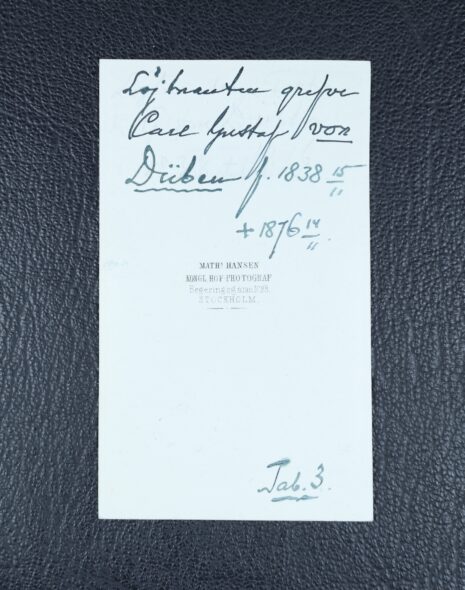 Löjtnanten grefve
Carl Gustaf von
Düben f. 1838 15/11
+ 1876 14/11.
MATHS HANSEN
KONGL. HOF FOTOGRAF
Regeringsgatan
STOCKHOLM.
Tab. 3.